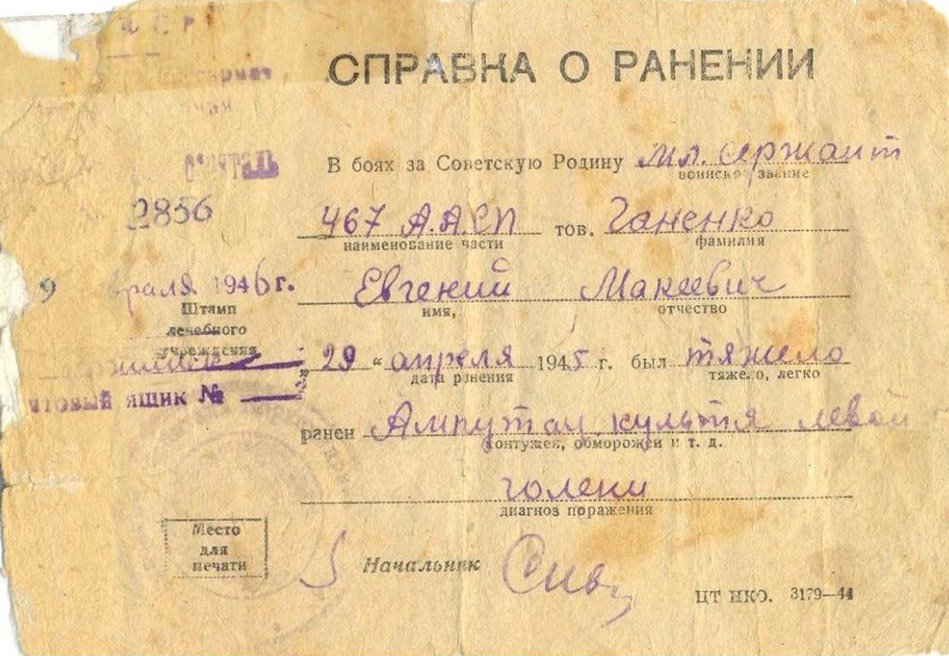 СПРАВКА О РАНЕНИИ
В боях за Советскую Родину мл. сержант
воинское звание
2856
467 А.А.СП тов. Ганенко
наименование части фамилия
враля 1946 г. Евгений Макеевич
имя, отчество
Штамп
лечебного
учреждения
„29 “ апреля 1945 г. был тяжело
дата ранения тяжело, легко
ящик №
ранен Ампутац. культя левой
контужен, обморожен и т. д.
голени
диагноз поражения
Место
для
печати
Начальник
ЦТ НКО. 3179—44